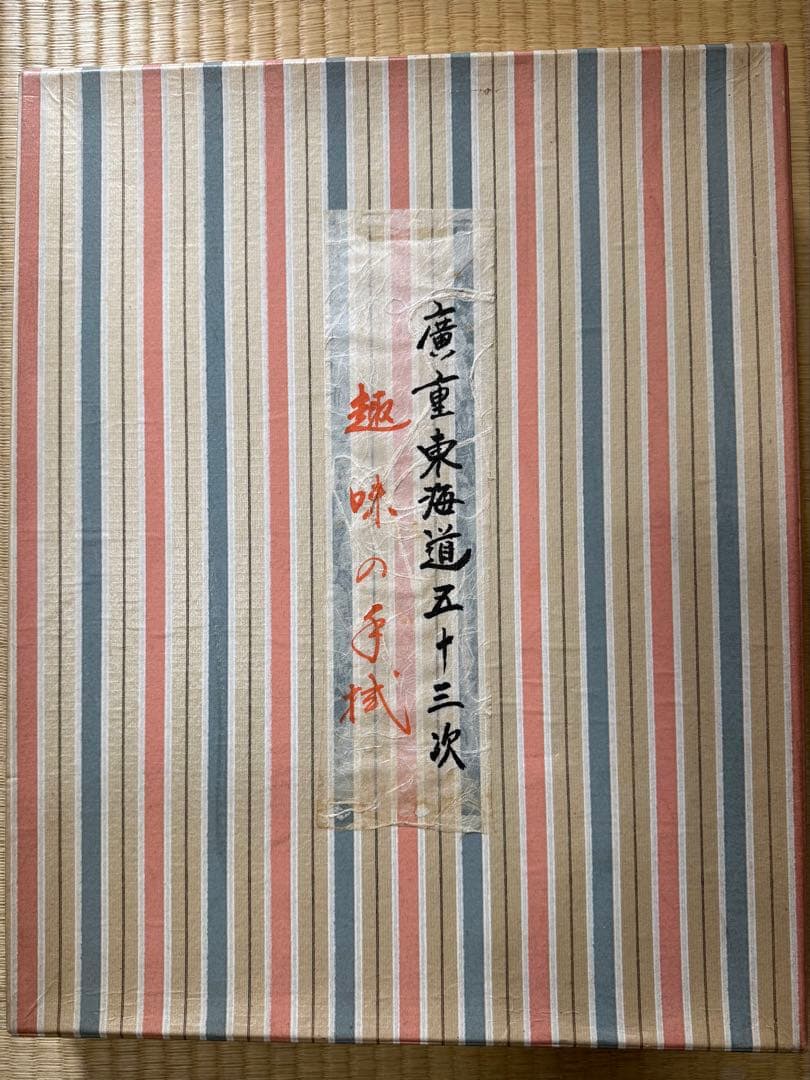 廣重東海道五十三次
趣味の手拭